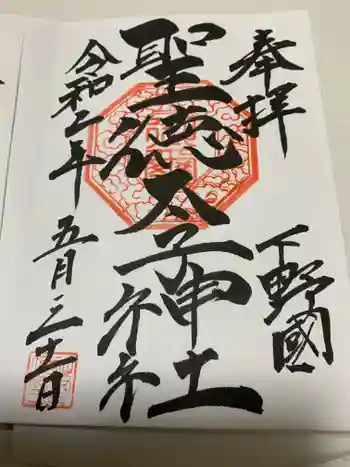 奉拝
下野國
聖徳太子神社
令和二年
五月三十一日